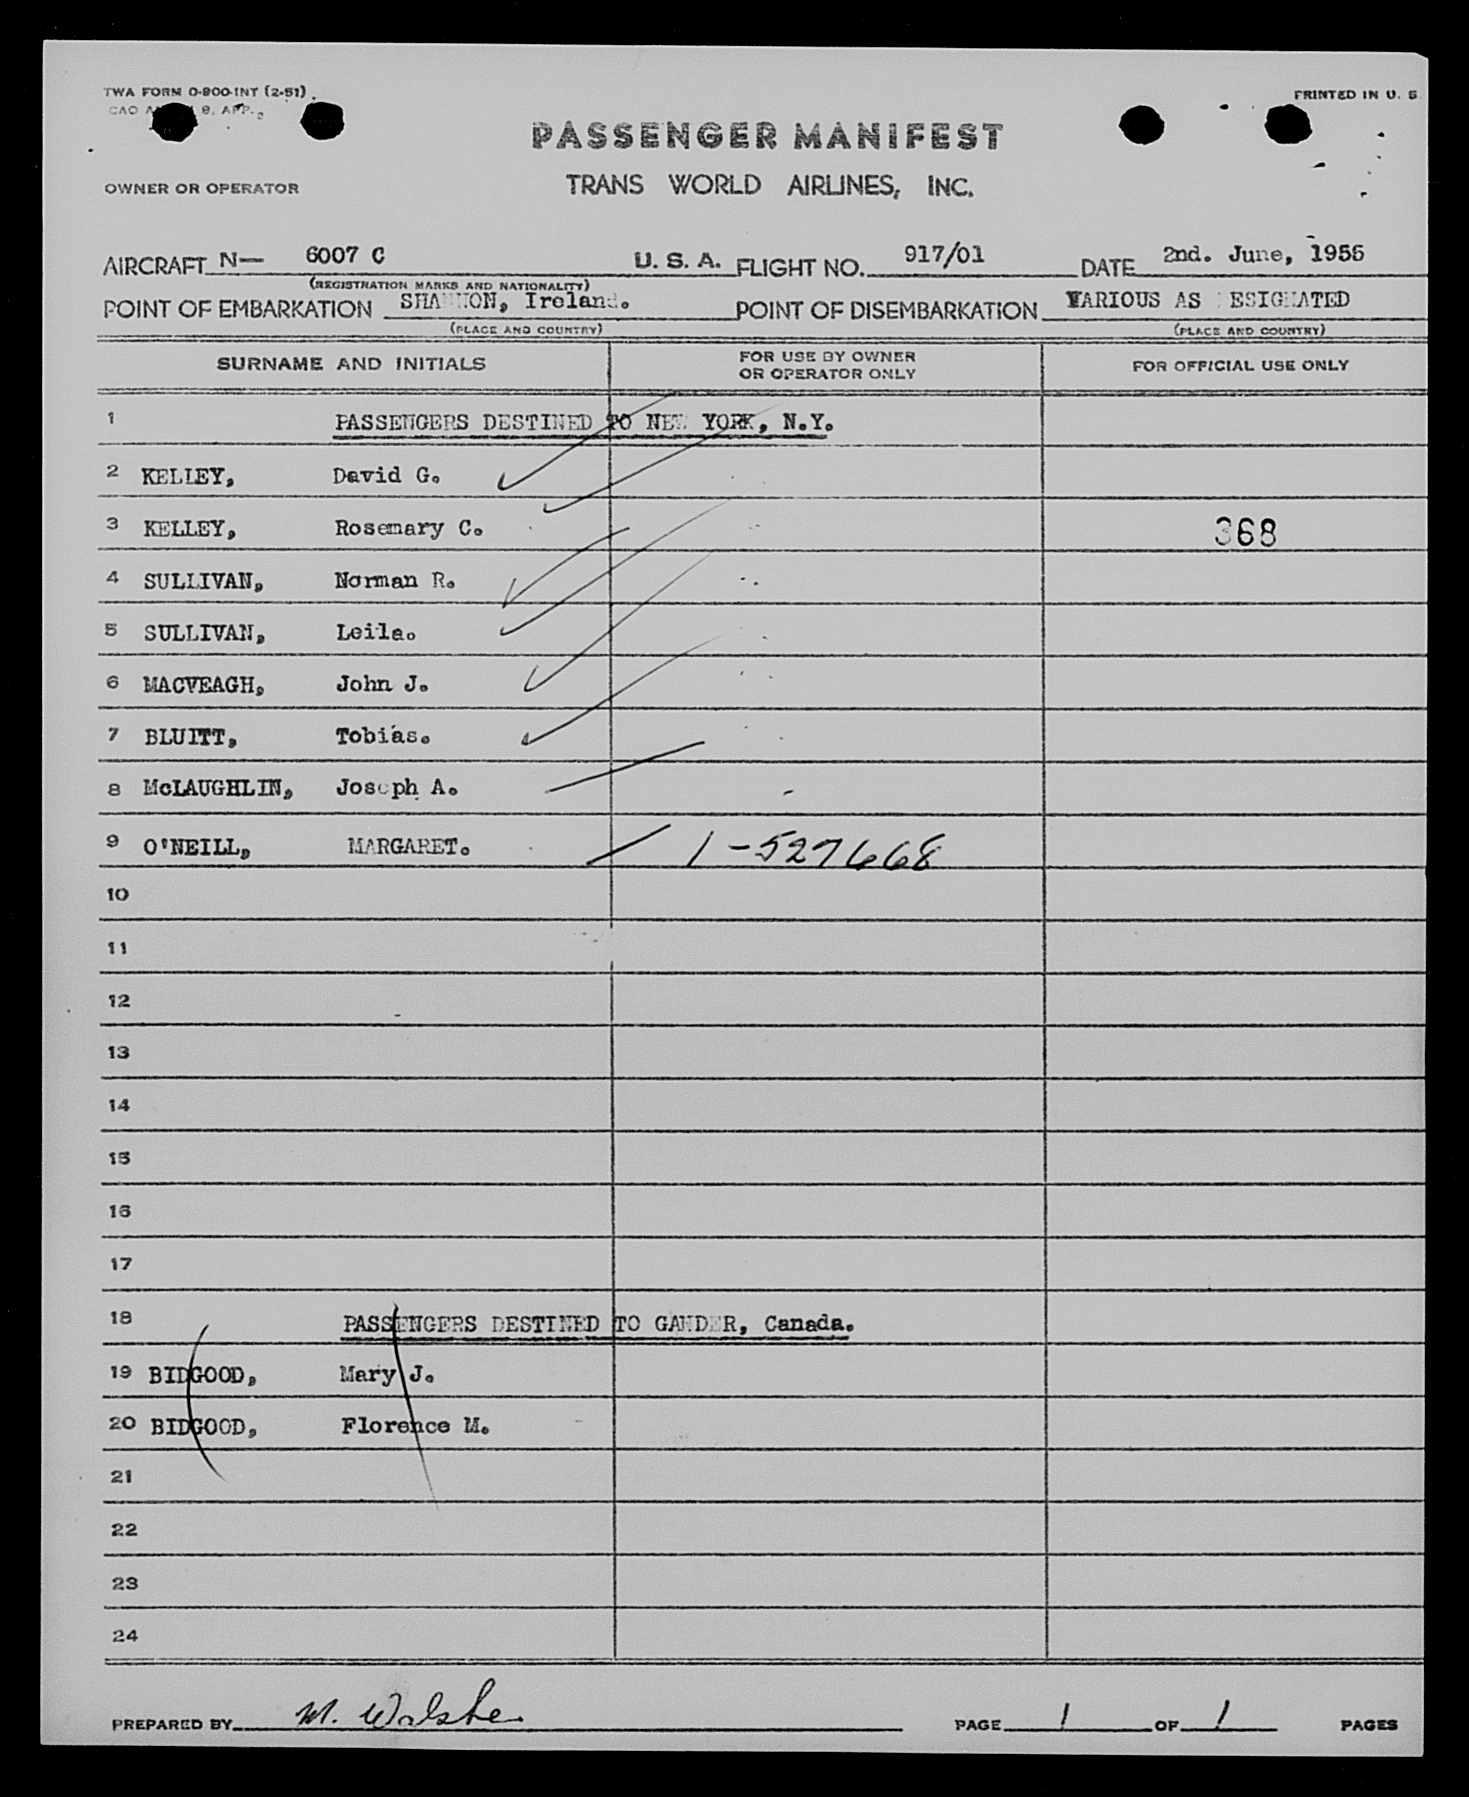 TWA FORM O-800-INT (2-51)
CAO 9, APP.
PRINTED IN U. S.
PASSENGER MANIFEST
OWNER OR OPERATOR
TRANS WORLD AIRLINES, INC.
AIRCRAFT N— 6007 C U. S. A. FLIGHT NO. 917/01 DATE 2nd. June, 1955
(REGISTRATION MARKS AND NATIONALITY)
POINT OF EMBARKATION SHANNON, Ireland. POINT OF DISEMBARKATION VARIOUS AS DESIGNATED
(PLACE AND COUNTRY) (PLACE AND COUNTRY)
SURNAME AND INITIALS FOR USE BY OWNER OR OPERATOR ONLY FOR OFFICIAL USE ONLY
1 PASSENGERS DESTINED TO NEW YORK, N.Y.
2 KELLEY, David G.
3 KELLEY, Rosemary C. 368
4 SULLIVAN, Norman R.
5 SULLIVAN, Leila.
6 MACVEAGH, John J.
7 BLUITT, Tobias.
8 McLAUGHLIN, Joseph A.
9 O'NEILL, MARGARET. 1-527668
10
11
12
13
14
15
16
17
18 PASSENGERS DESTINED TO GANDER, Canada.
19 BIDGOOD, Mary J.
20 BIDGOOD, Florence M.
21
22
23
24
PREPARED BY M. Walshe PAGE 1 OF 1 PAGES